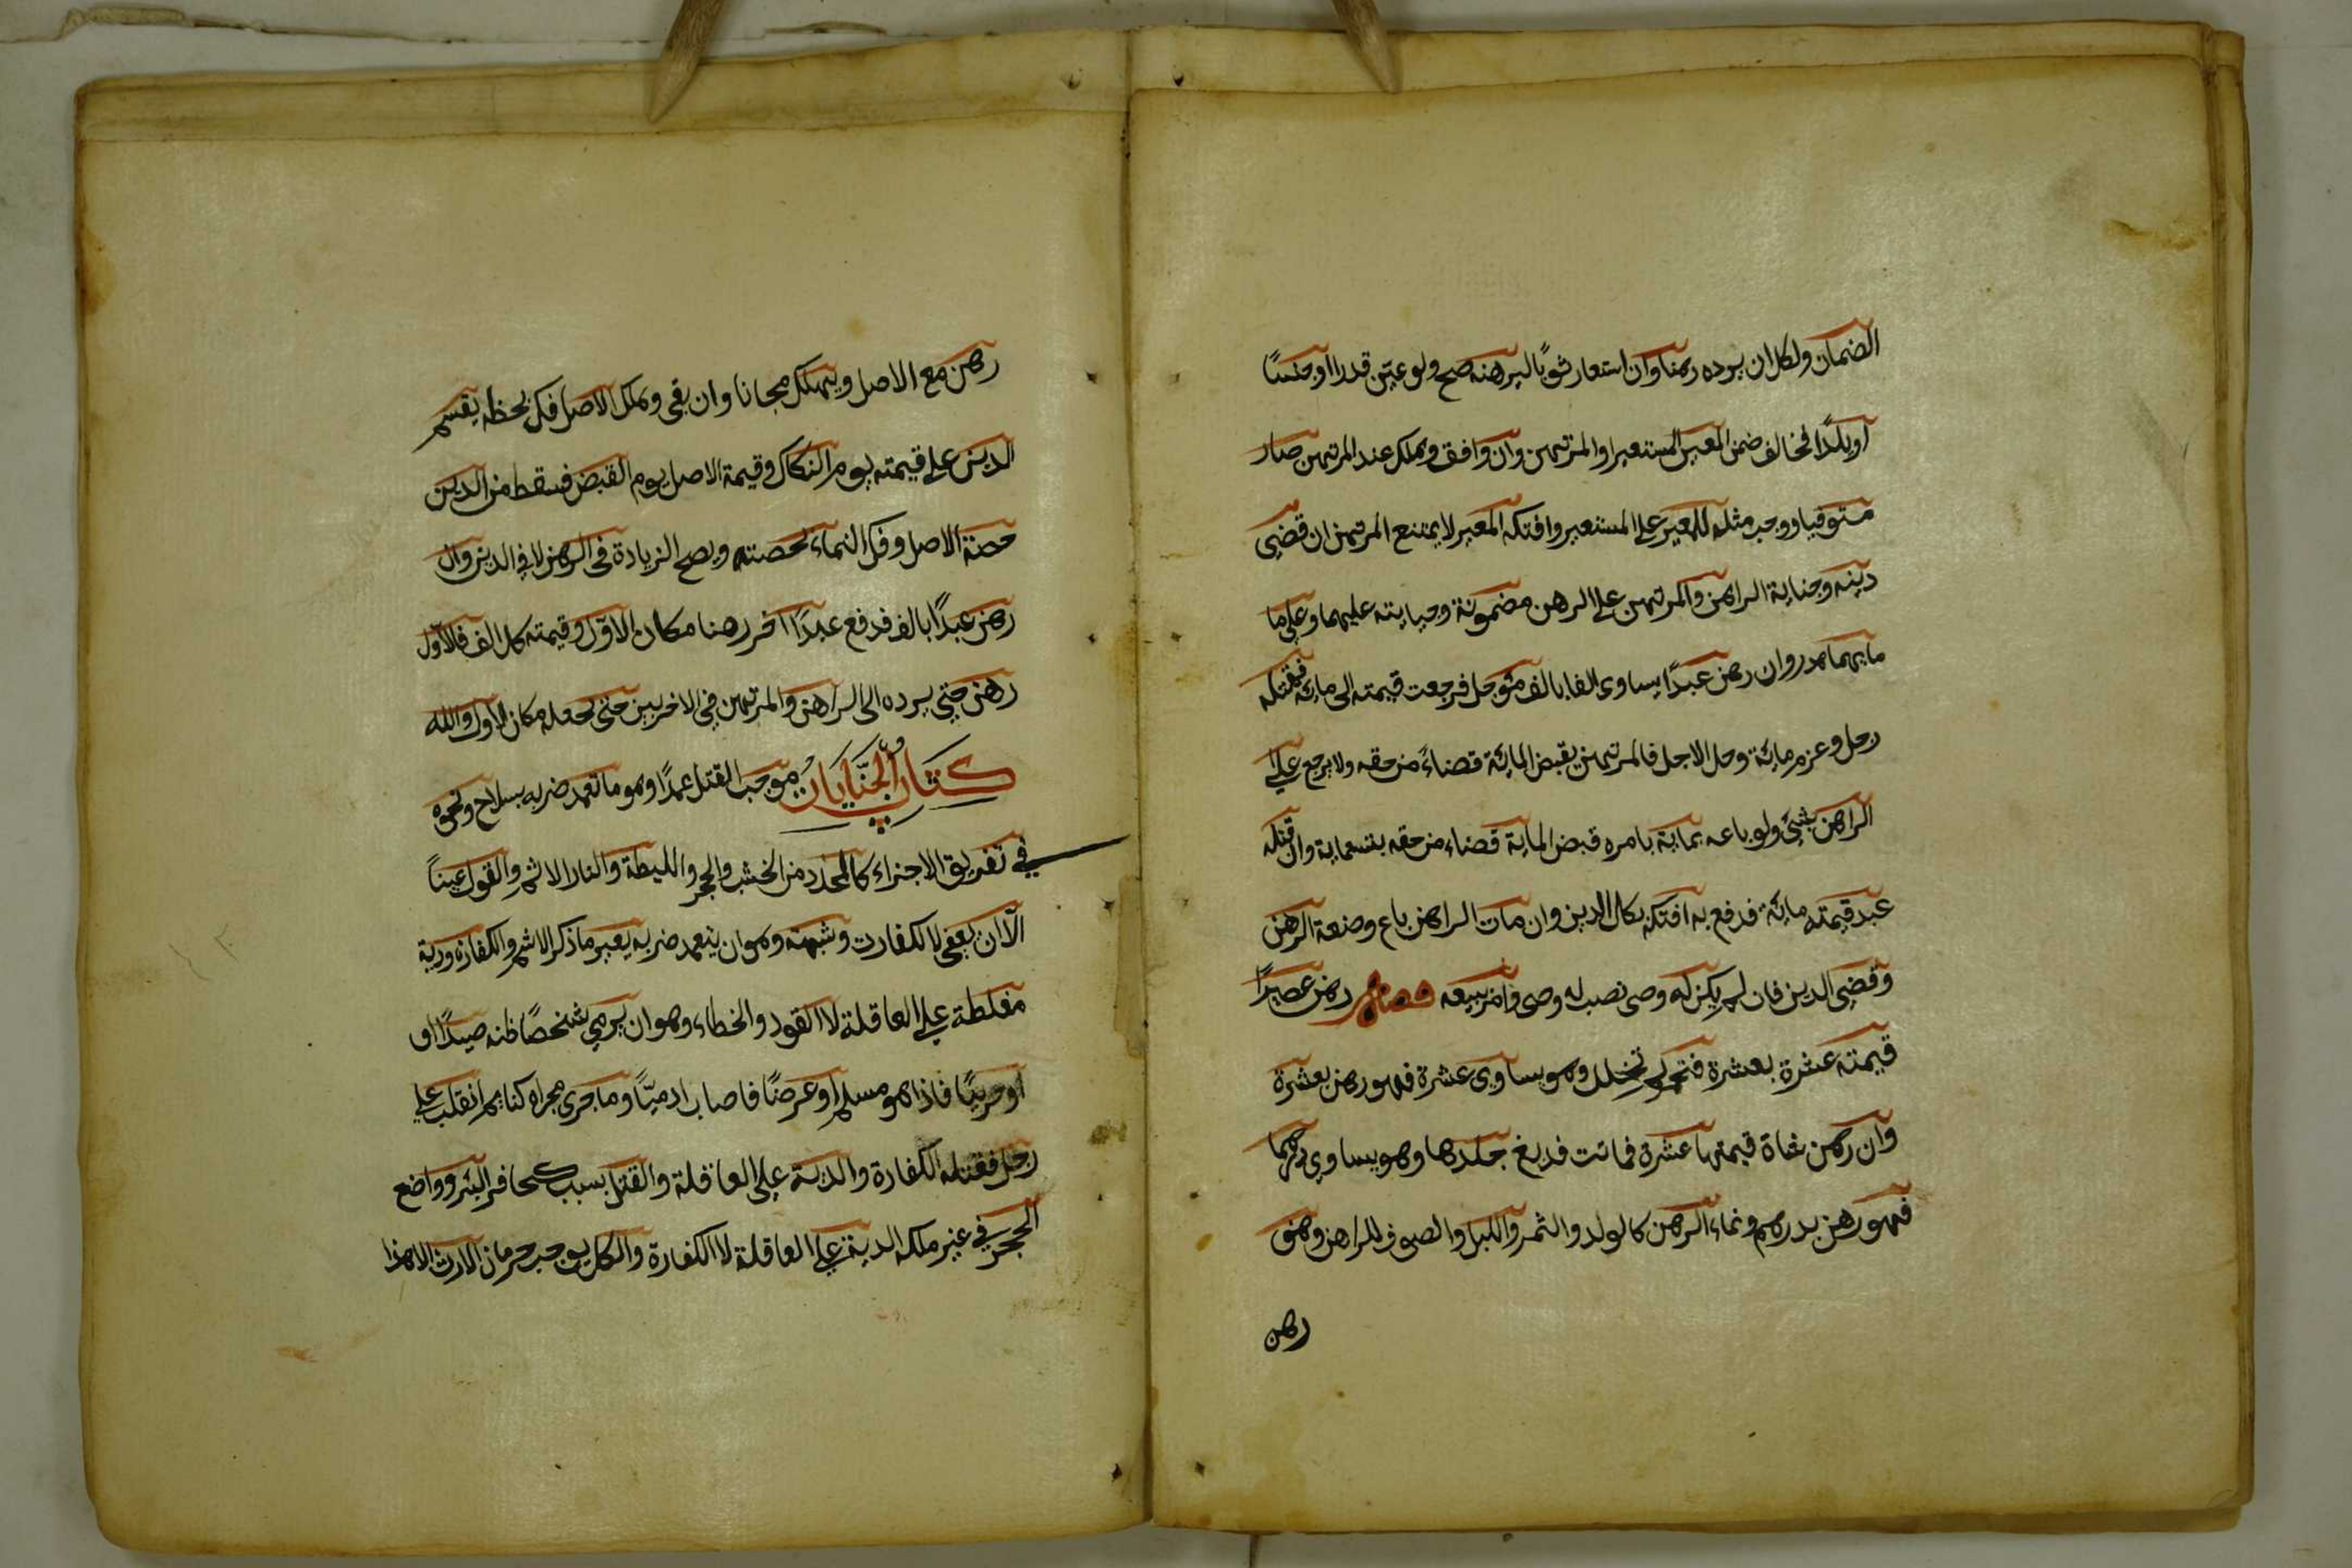 الضمان ولكل ان يرده رهنا وان استعار ثوبًا ليرهنه صح ولو عين قدرا او جنسًا
او بلدًا فخالف ضمن المعير المستعير او المرتهن وان وافق وهلك عند المرتهن صار
مستوفيا ووجب مثله للمعير على المستعير وافتكه المعير لا يمتنع المرتهن ان قضى
دينه وجناية الراهن والمرتهن على الرهن مضمونة وجنايته عليهما وعلى ما
مالهما هدر وان رهن عبدًا يساوى الفا بالف مؤجل فرجعت قيمته الى مائة فقتله
رجل وغرم مائة وحل الاجل فالمرتهن يقبض المائة قضاءً من حقه ولا يرجع على
الراهن بشئ ولو باعه بماية بامره قبض الماية قضاء من حقه بتسعماية وان قتله
عبد قيمته مائة فدفع به افتكه بكل الدين وان مات الراهن باع وصيه الرهن
وقضى الدين فان لم يكن له وصى نصب له وصى وامر ببيعه فصل رهن عصيرًا
قيمته عشرة بعشرة فتخمر ثم تخلل وهو يساوى عشرة فهو رهن بعشرة
وان رهن شاة قيمتها عشرة فماتت فدبغ جلدها وهو يساوى درهما
فهو رهن بدرهم ونماء الرهن كالولد والثمر واللبن والصوف للراهن وهو
رهن
رهن مع الاصل ويهلك مجانا وان بقى وهلك الاصل فك بحظه يقسم
الدين على قيمته يوم الفكاك وقيمة الاصل يوم القبض فسقط من الدين
حصة الاصل وفك النماء بحصته ويصح الزيادة فى الرهن لا فى الدين وان
رهن عبدًا بالف فدفع عبدًا اخر رهنا مكان الاول وقيمته كل الف فالاول
رهن حتى يرده الى الراهن والمرتهن فى الاخر بين حتى يجعله مكان الاول والله
كتاب الجنايات موجب القتل عمدًا وهو ما تعمد ضربه بسلاح ونحوه
في تفريق الاجزاء كالمحدد من الخشب والحجر والليطة والنار الاثم والقود عينًا
الا ان يعفى لا الكفارت وشبهه وهو ان يتعمد ضربه بغير ما ذكر الاثم والكفارة ودية
مغلظة على العاقلة لا القود والخطاء وهو ان يرمى شخصًا ظنه صيدًا او
او حربيًا فاذا هو مسلم او عرضًا فاصاب ادميًا وما جرى مجراه كنايم انقلب على
رجل فقتله الكفارة والدية على العاقلة والقتل بسبب كحافر البئر وواضع
الحجر فى غير ملكه الدية على العاقلة لا الكفارة والكل يوجب حرمان الارث الا هذا